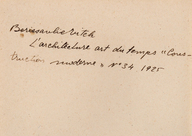 Berissavlievitch
L'architecture art du temps "Cons-
truction moderne" N° 34 1925